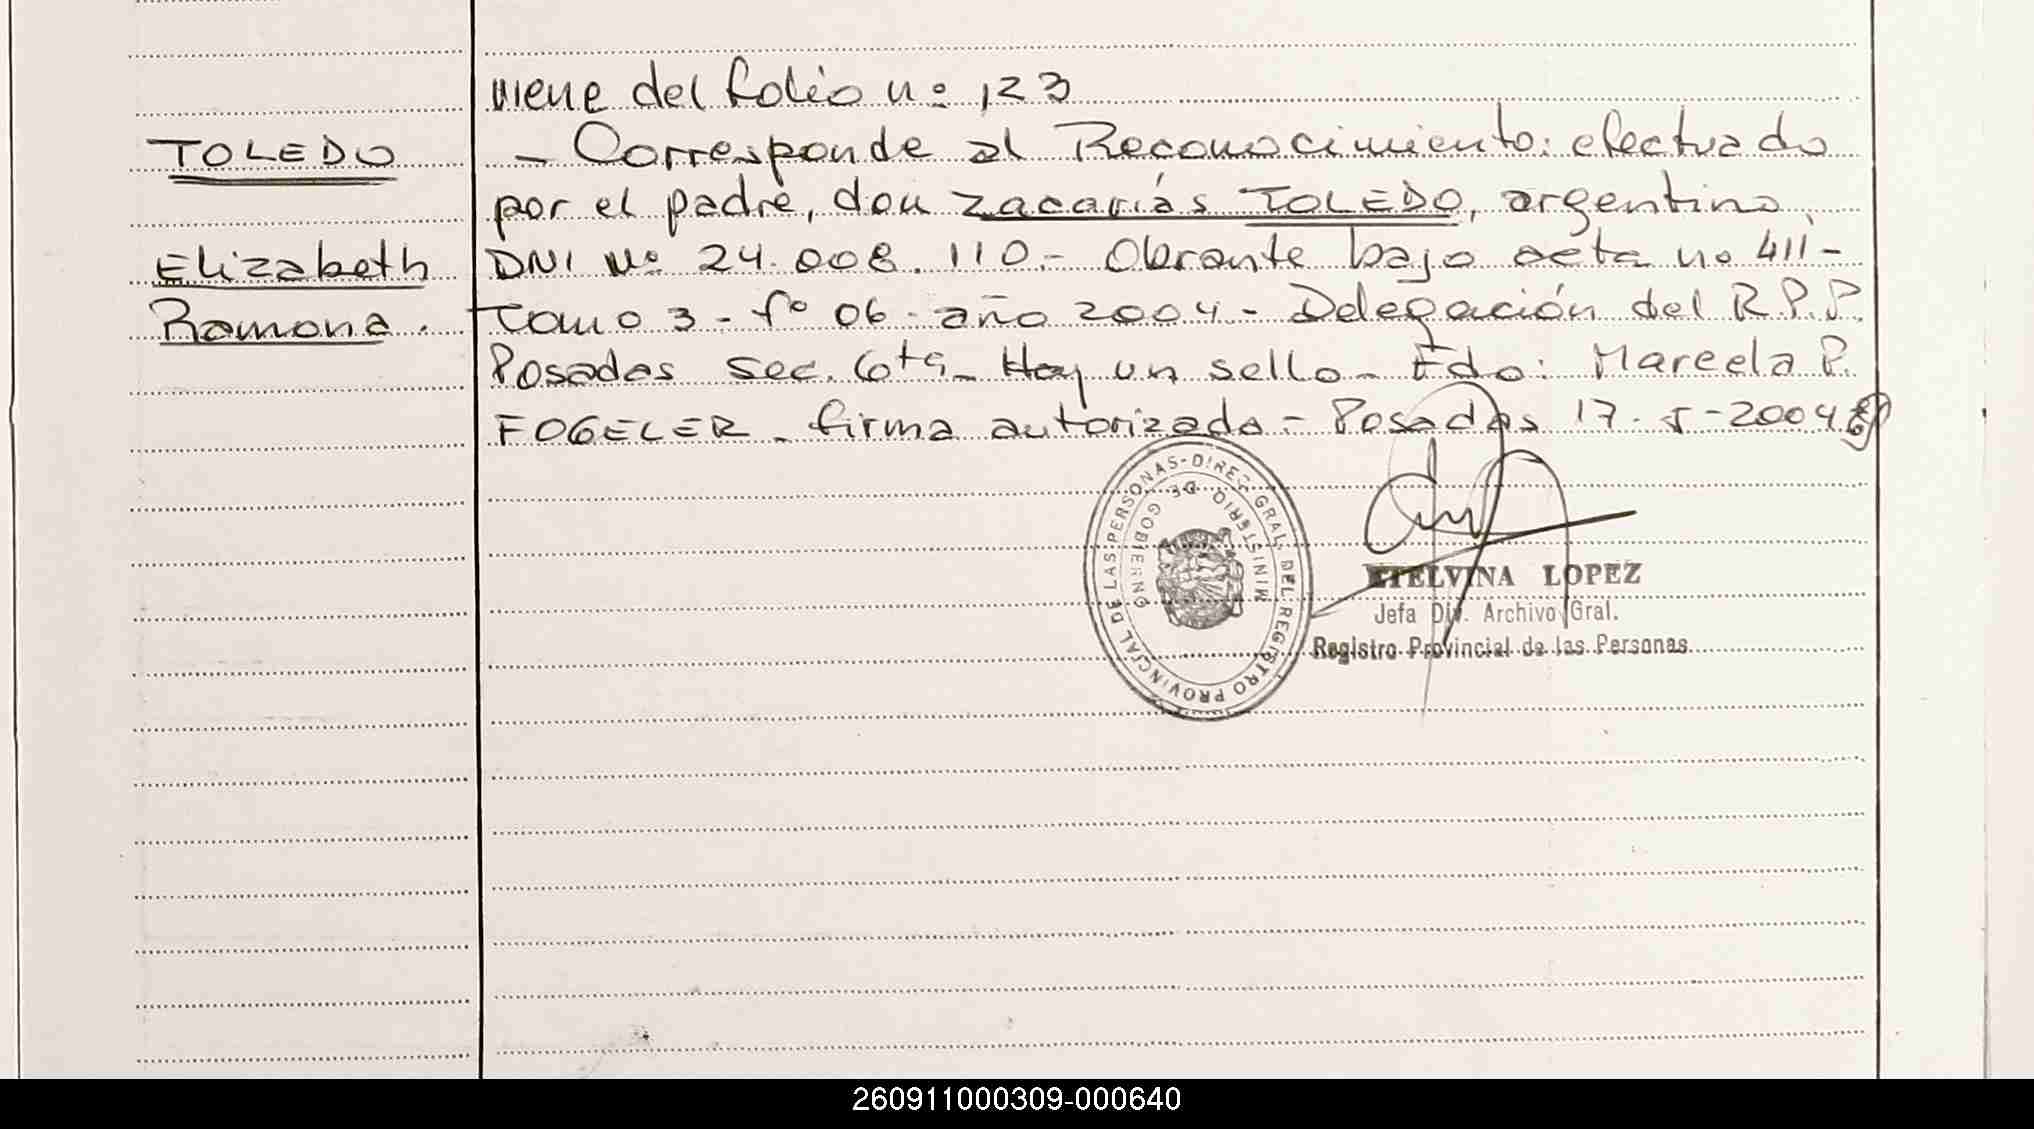 viene del folio nº 123
TOLEDO
Elizabeth
Ramona.
- Corresponde al Reconocimiento: efectuado
por el padre, don Zacarías TOLEDO, argentino,
DNI Nº 24.008.110.- Obrante bajo acta nº 411-
Tomo 3 - fº 06 - año 2004 - Delegación del R.P.P.
Posadas sec. 6ta. Hay un sello - Fdo: Marcela P.
FOGELER - firma autorizada - Posadas 17-5-2004
DIREC. GRAL. DEL REGISTRO PROVINCIAL DE LAS PERSONAS -
MINISTERIO DE GOBIERNO
ETELVINA LOPEZ
Jefa Div. Archivo Gral.
Registro Provincial de las Personas
260911000309-000640